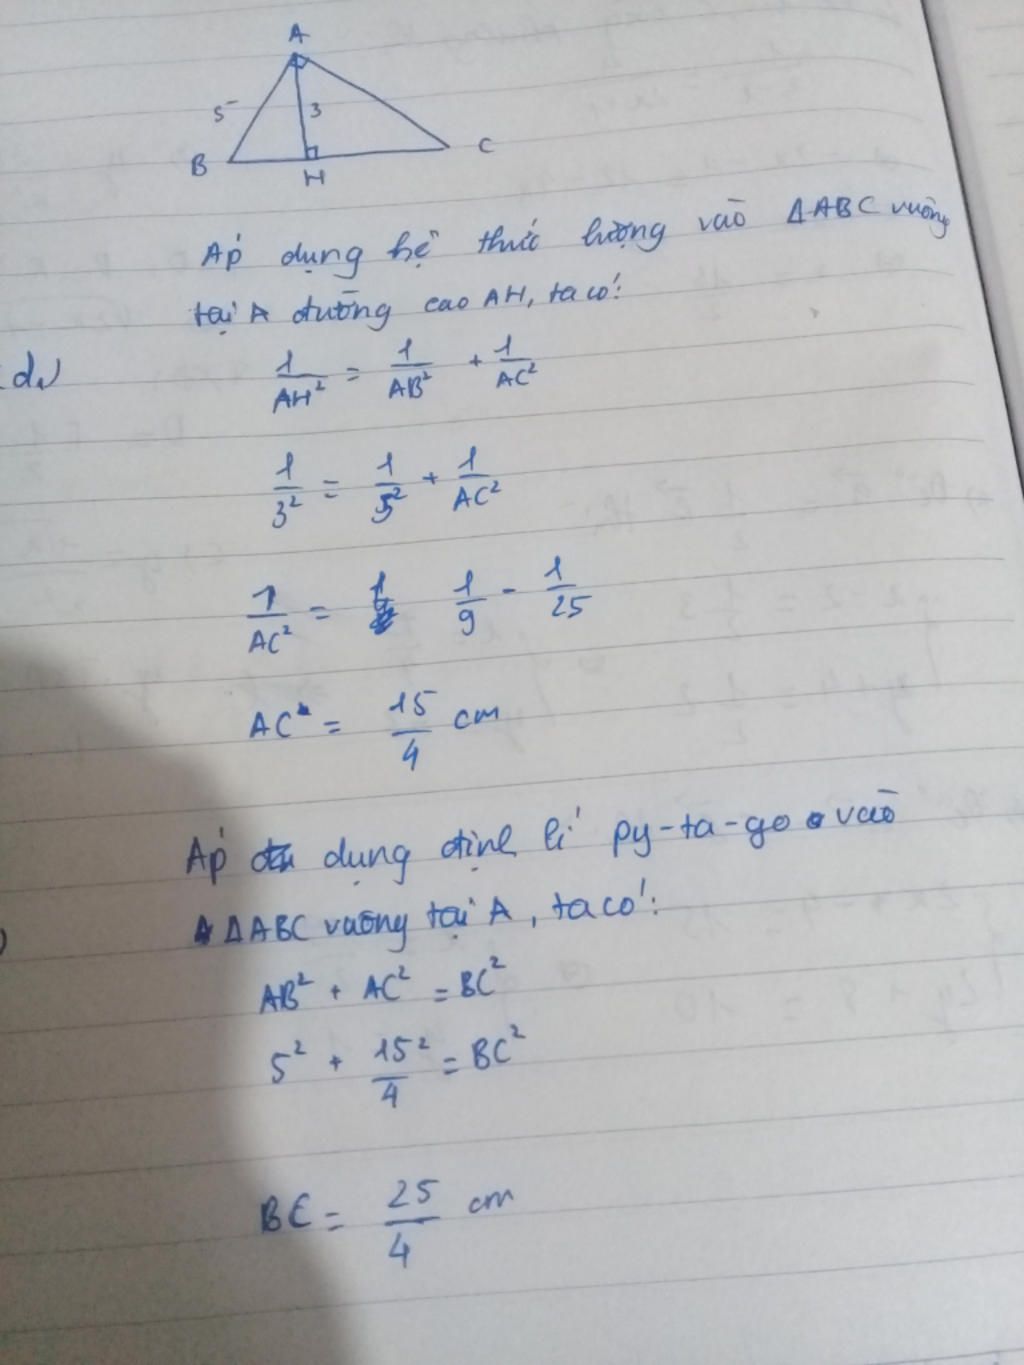 A
5
3
B
H
C
Áp dụng hệ thức lượng vào ΔABC vuông
tại A đường cao AH, ta có:
d,
1/AH² = 1/AB² + 1/AC²
1/3² = 1/5² + 1/AC²
1/AC² = 1/9 - 1/25
AC = 15/4 cm
Áp dụng định lí py-ta-go vào
ΔABC vuông tại A, ta có:
AB² + AC² = BC²
5² + 15²/4 = BC²
BC = 25/4 cm